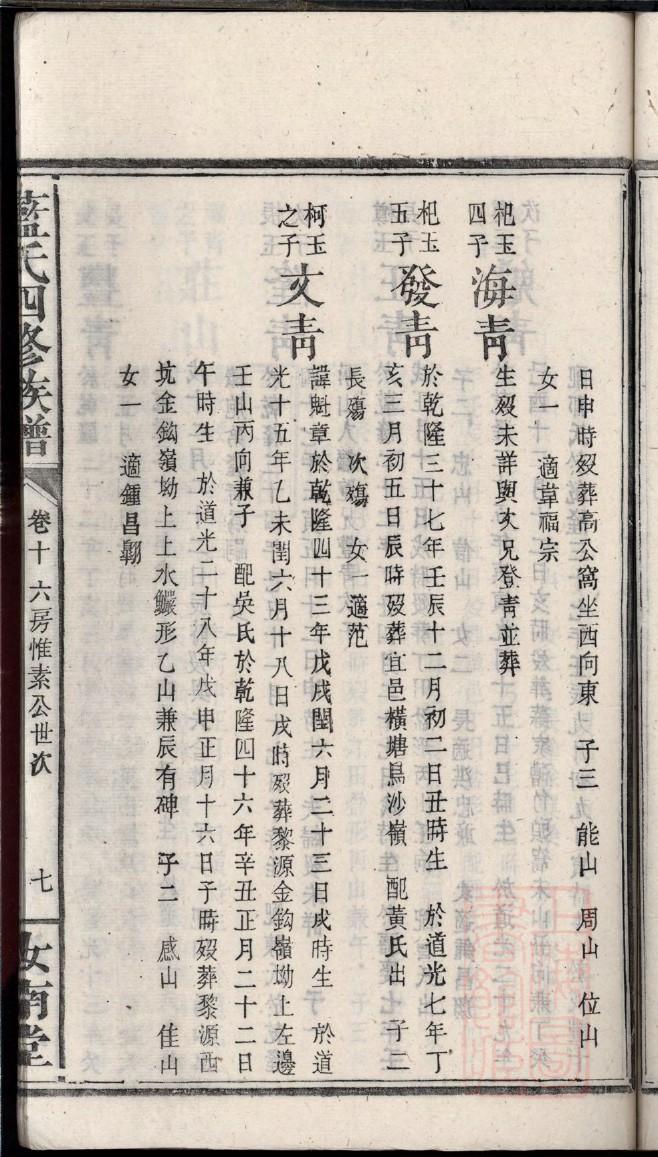 日申時歿葬高公窩坐西向東 子三 能山 周山 位山
女一 適韋福宗
杞玉四子
海青
生歿未詳與父兄登青並葬
杞玉五子
發青
於乾隆三十七年壬辰十二月初二日丑時生 於道光七年丁
亥三月初五日辰時歿葬宜邑橫塘鳥沙嶺 配黃氏出 子二
長殤 次殤 女一適范
柯玉之子
文青
諱魁章於乾隆四十三年戊戌閏六月二十三日戌時生 於道
光十五年乙未閏六月十八日戌時歿葬黎源金鈎嶺坳上左邊
壬山丙向兼子 配吳氏於乾隆四十六年辛丑正月二十二日
午時生 於道光二十八年戊申正月十六日子時歿葬黎源西
坑金鈎嶺坳上上水鱺形乙山兼辰有碑 子二 感山 佳山
女一 適鍾昌
藍氏四修族譜
卷十六房惟素公世次
七
汝南堂